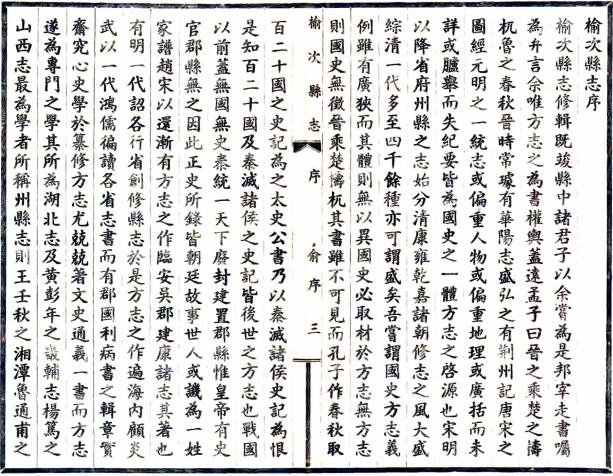 榆次縣志序
榆次縣志修輯既竣縣中諸君子以余嘗為是邦宰走書囑
為弁言余唯方志之為書權輿蓋遠孟子曰晉之乘楚之檮
杌魯之春秋晉時常璩有華陽志盛弘之有荆州記唐宋之
圖經元明之一統志或偏重人物或偏重地理或廣括而未
詳或臚舉而失紀要皆為國史之一體方志之啟源也宋明
以降省府州縣之志始分清康雍乾嘉諸朝修志之風大盛
綜清一代多至四千餘種亦可謂盛矣吾嘗謂國史方志義
例雖有廣狹而其體則無以異國史必取材於方志無方志
則國史無徵晉乘楚檮杌其書雖不可見而孔子作春秋取
榆次縣志 序 俞序 三
百二十國之史記為之太史公書乃以秦滅諸侯史記為恨
是知百二十國及秦滅諸侯之史記皆後世之方志也戰國
以前蓋無國無史秦統一天下廢封建置郡縣惟皇帝有史
官郡縣無之因此正史所錄皆朝廷故事世人或譏為一姓
家譜趙宋以還漸有方志之作臨安吳郡建康諸志其著也
有明一代詔各行省創修縣志於是方志之作遍海內顧炎
武以一代鴻儒徧讀各省志書而有郡國利病書之輯章實
齋究心史學於纂修方志尤兢兢著文史通義一書而方志
遂為專門之學其所為湖北志及黃彭年之畿輔志楊篤之
山西志最為學者所稱州縣志則王壬秋之湘潭魯通甫之